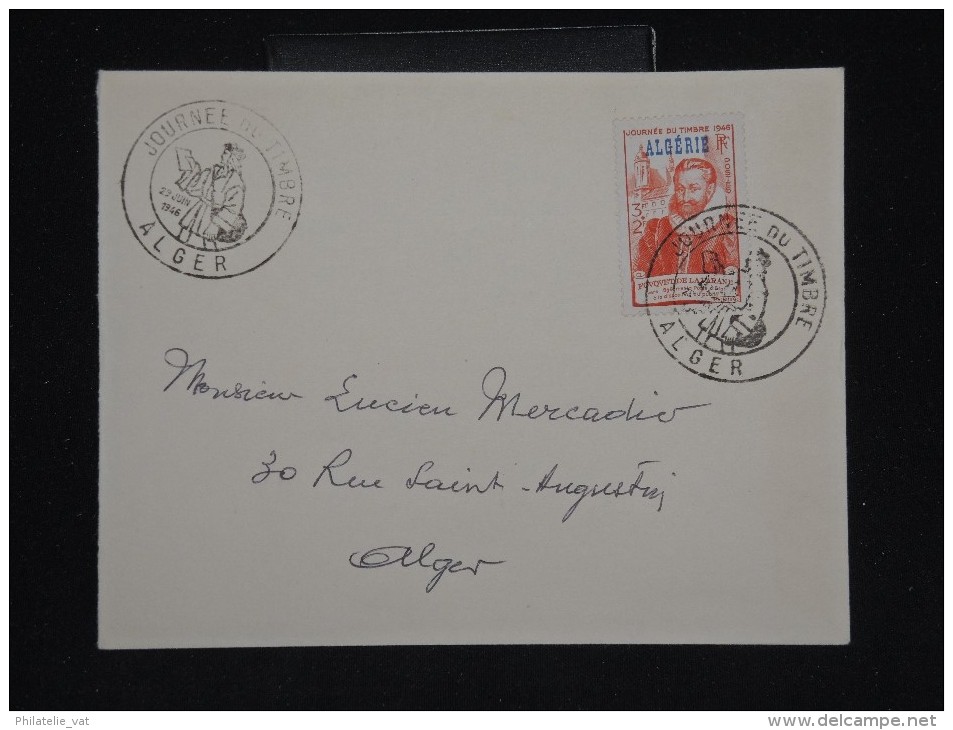 JOURNÉE DU TIMBRE
29 JUIN
1946
ALGER
JOURNÉE DU TIMBRE 1946
ALGÉRIE RF
POSTES
3F
+2F
FOUQUET DE LA VARANE
JOURNÉE DU TIMBRE
ALGER
Monsieur Lucien Mercadio
30 Rue Saint-Augustin
Alger
Philatelie_vat
www.delcampe.net